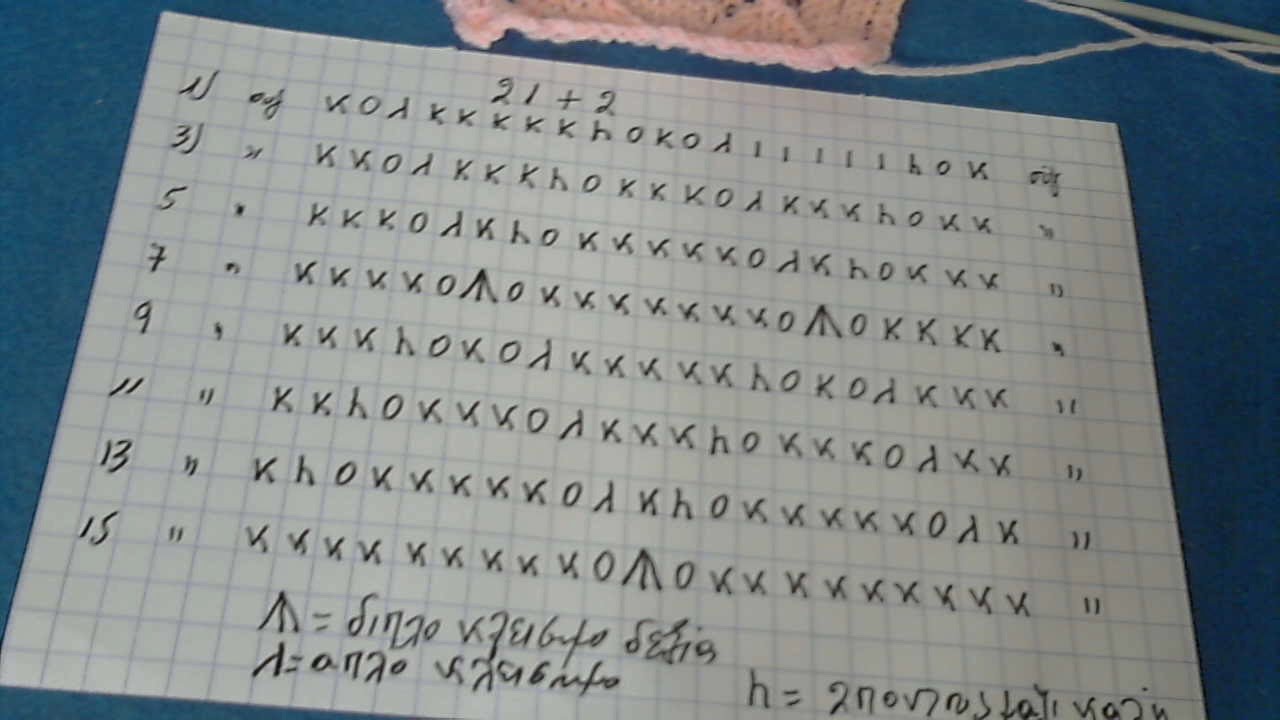 21 + 2
1) ουγ κ ο λ κ κ κ κ κ h ο κ ο λ ı ı ı ı ı h ο κ ουγ
3) " κ κ ο λ κ κ κ h ο κ κ κ ο λ κ κ κ h ο κ κ "
5 " κ κ κ ο λ κ h ο κ κ κ κ κ ο λ κ h ο κ κ κ "
7 " κ κ κ κ ο ⩚ ο κ κ κ κ κ κ κ ο ⩚ ο κ κ κ κ "
9 " κ κ κ h ο κ ο λ κ κ κ κ κ h ο κ ο λ κ κ κ "
11 " κ κ h ο κ κ κ ο λ κ κ κ h ο κ κ κ ο λ κ κ "
13 " κ h ο κ κ κ κ κ ο λ κ h ο κ κ κ κ κ ο λ κ "
15 " κ κ κ κ κ κ κ κ κ ο ⩚ ο κ κ κ κ κ κ κ κ κ "
⩚ = διπλο κλεισιμο δεξια
λ = απλο κλεισιμο
h = 2 ποντους μαζι καλη